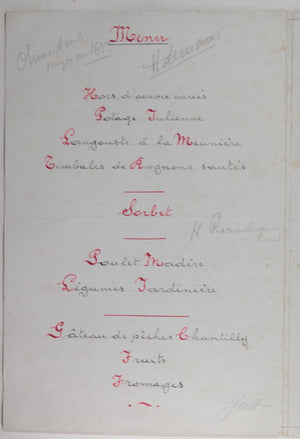 Menu
Hors d'oeuvre variés
Potage Julienne
Langouste à la Meunière
Timbales de Rognons sautés
Sorbet
Poulet Madère
Légumes Jardinière
Gâteau de pêches Chantilly
Fruits
Fromages